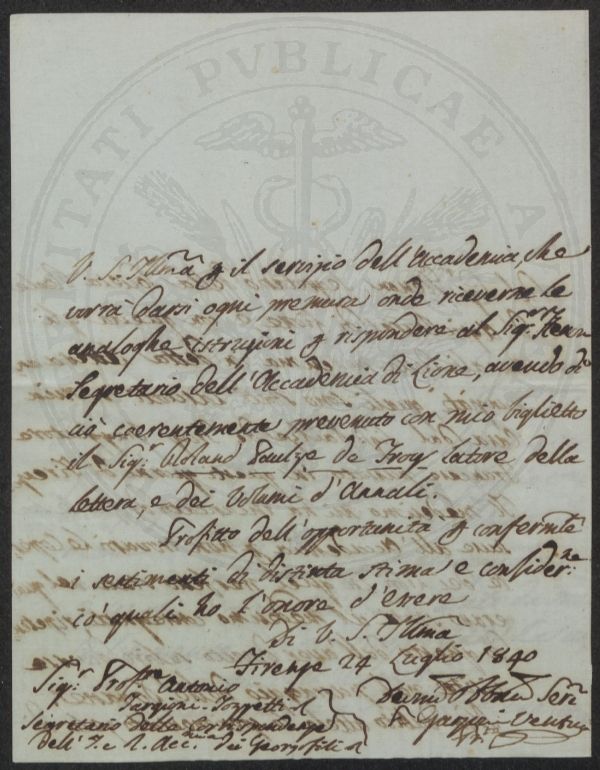 PROSPERITATI PVBLICAE AV
V. S. Illma p il servizio dell'Accademia, che
vorrà darsi ogni premura onde riceverne le
analoghe istruzioni p rispondere al Sigr.
Segretario dell'Accademia di Lione, avendo di
ciò coerentemente prevenuto con mio biglietto
il Sigr. de Troy latore della
lettera, e dei Volumi d'Annali.
Profitto dell'opportunità p confermle
i sentimenti di distinta stima e consider:ne
co' quali ho l'onore d'essere
Di V. S. Illma
Firenze 24 Luglio 1840
Sigr. Profre Antonio
Targioni-Tozzetti
Segretario della Corrispondenza
dell'I. e R. Accmia dei Georgofili
Devmo Obbmo